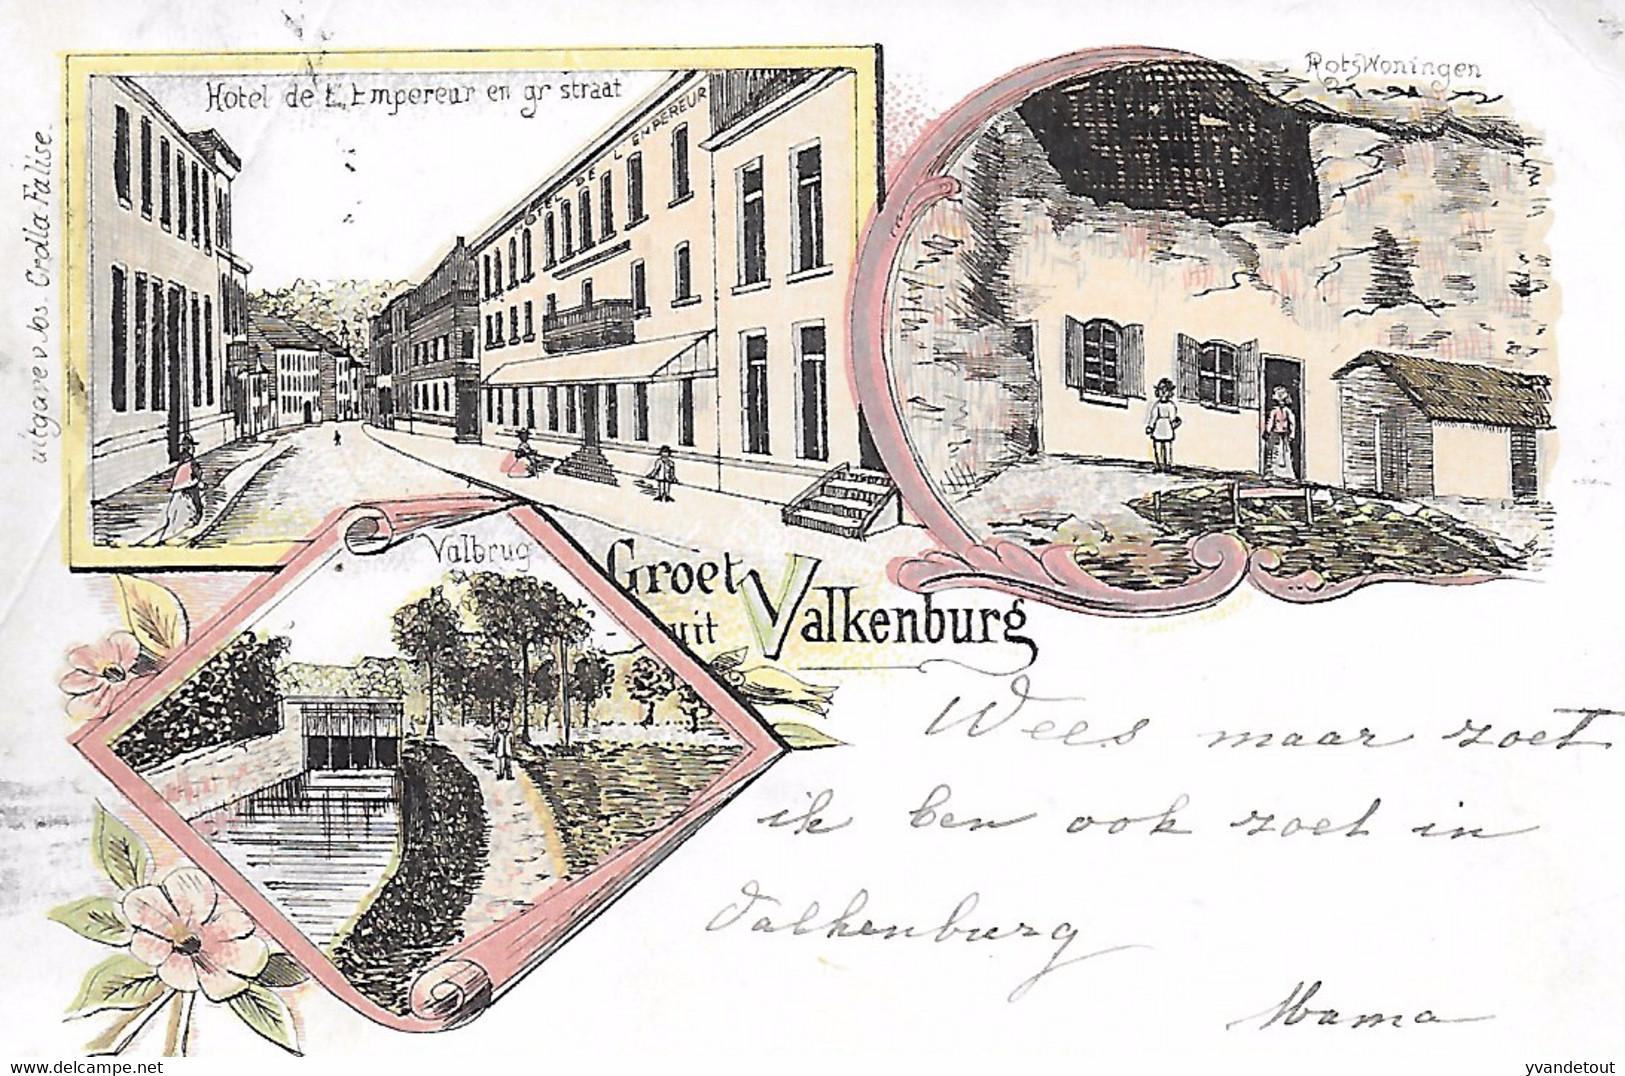 Hotel de L'Empereur en gr straat
HOTEL DE L'EMPEREUR
RotsWoningen
uitgave v Jos. Crolla-Falise.
Valbrug
Groet
uit Valkenburg
Wees maar zoet
ik ben ook zoet in
Valkenburg
Mama
delcampe.net
yvandetout